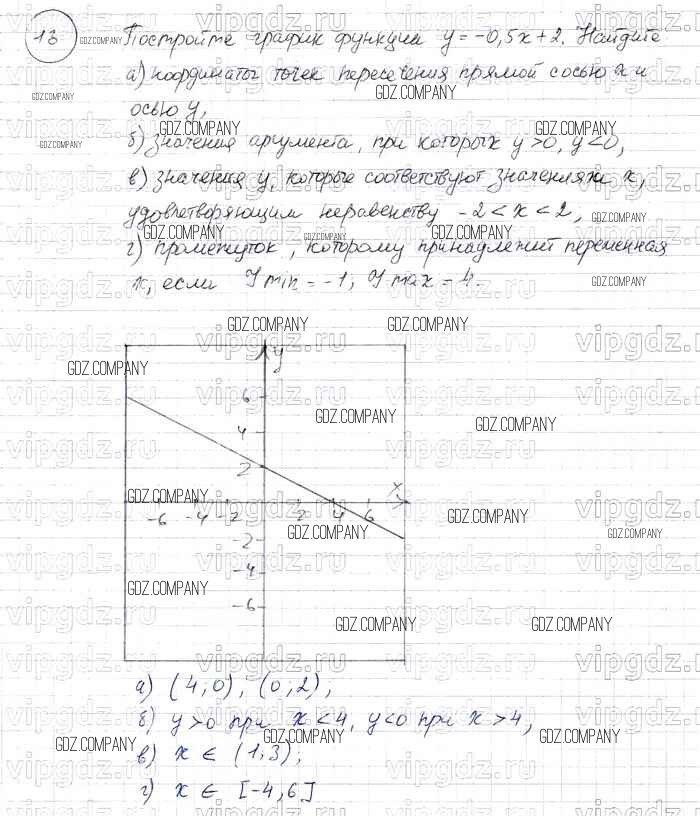 13 Постройте график функции y = -0,5x + 2. Найдите
а) координаты точек пересечения прямой с осью x и
осью y,
б) значения аргумента, при которых y > 0, y < 0,
в) значения y, которые соответствуют значениям x,
удовлетворяющим неравенству -2 < x < 2,
г) промежуток, которому принадлежит переменная
x, если y min = -1; y max = 4.
y
6
4
2
x
-6 -4 -2 2 4 6
-2
-4
-6
а) (4; 0), (0; 2);
б) y>0 при x < 4, y<0 при x > 4;
в) x ∈ (1; 3);
г) x ∈ [-4, 6]
GDZ.COMPANY
vipgdz.ru